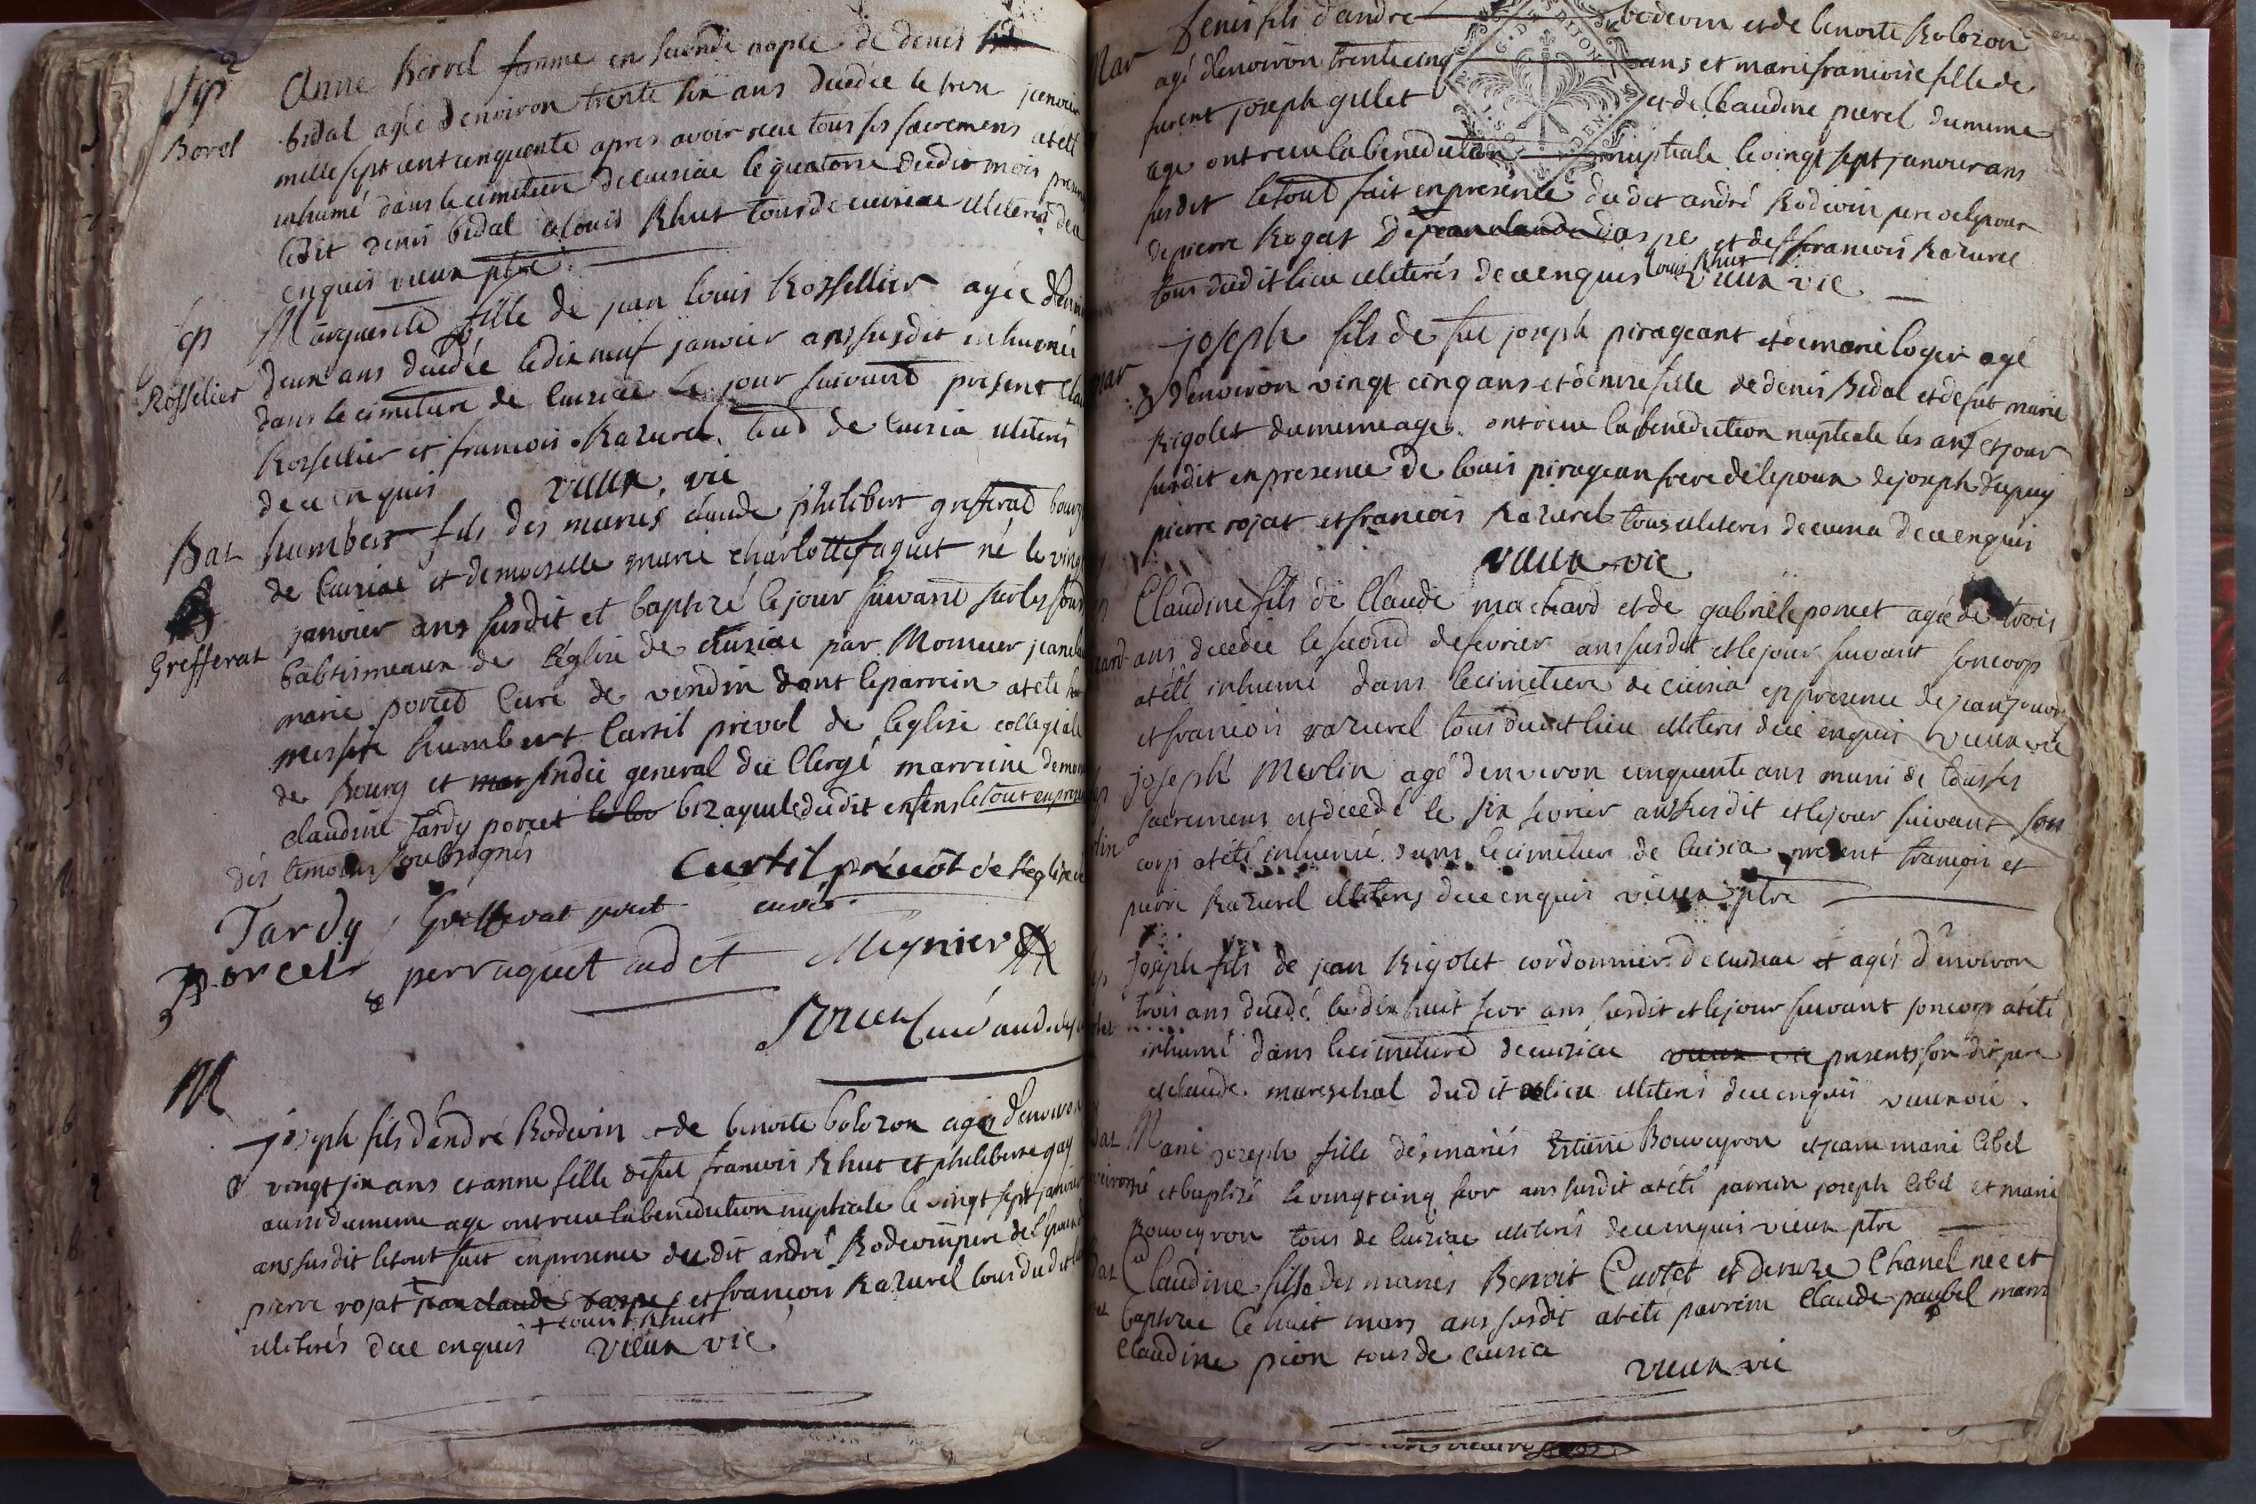 Sep
Borel
Anne Borrel femme en seconde nopce de denis
bidal agée denviron trente six ans decedée le treze janvier
mille sept cent cinquente apres avoir receu tous ses sacremens at eté
inhumé dans le cimetiere decuisiae le quatorse dudit mois present
ledit denis bidal et louis Rhut tous de cuisiae illiterés de ce
enquis vieux ptre
Sep
Rossellier
Marguerite fille de jean louis Rossellier agée
deux ans decedée ledix neuf janvier ans susdit inhumée
dans le cimetiere de cuisiae le jour suivant present
Rossellier et francois Razurel tous de cuisia illiterés
de ce enquis vieux vic
Bat
Grefferat
humbert fils des mariés claude philibert grefferat
de Cuisiae et demoiselle marie charlotte faguet né le
janvier ans susdit et baptizé le jour suivant sur les
babtismeaux de leglise de cuisiae par Monsieur
marie porcet curé de dont leparrein at eté
messire humbert Curtil prevol de leglise collegiale
de Bourg et sindic general du Clergé marreine
claudine Tardy porcet bizayeule dudit enfens le tout en
des temoins soubsignés
Curtil prévôt de leglise
Tardy Grefferat porcet curé
Porcet perraquet cadet Meynier
vieux curé
M
joseph fils dandré Rodevin et de benoite bolozon agés denviron
vingt six ans et anne fille defut francois Rhut et philiberte gay
aussi dumeme age ont receu la benediction nuptiale le vingt sept janvier
ans susdit le tout fait en presence dudit andré Rodevin pere de lepoux
pierre rojat jean claude et francois Razurel tous dudit
+ Louis Rhut
illiterés de ce enquis vieux vic
Mar
denis fils dandré Rodevin et de benoite Bolozon
agé denviron trente cinq ans et marie francoise fille de
furent joseph gillet et de Claudine pierel dumeme
age ont receu la benediction nuptiale le vingt sept janvier ans
susdit letout fait en presence dudit andré Rodevin pere de lepoux
de pierre Rogat De jean claude et de francois Razurel
Louis Rhut
tous dudit lieu illiterés de ce enquis vieux vic
mar
joseph fils de fut joseph pirageant et de marie loger agé
denviron vingt cinq ans et denise fille de denis Bidal et de fut marie
Rigolet dumeme age ont receu la benediction nuptiale les ans et jour
susdit en presence de louis pirageans frere de lepoux de joseph dupuy
pierre rojat et francois Razurel tous illiteres de cuisia de ce enquis
vieux vic
Claudine fils de Claude machard et de gabriele poncet agée de trois
ans decedée le second de fevrier ans susdit et le jour suivant son corps
at eté inhumé dans le cimetiere de cuisia en presence de jean
et francois razurel tous dudit lieu illiteres de ce enquis vieux vic
joseph Merlin agé denviron cinquente ans muni de tous ses
sacremens est decedé le six fevrier ans susdit et le jour suivant son
corps at eté inhumé dans le cimetiere de cuisia present francois et
pierre Razurel illiteres de ce enquis vieux ptre
joseph fils de jean Rigolet cordonnier de cuisiae et agés denviron
trois ans decedé le dix huit fevr ans susdit et le jour suivant son corps at eté
inhumé dans le cimetiere de cuisiae vieux vic presents son dit pere
et claude mareschal dudit lieu illiterés de ce enquis vieux vic
bat
Marie joseph fille des mariés Etiene Bouveyron et jeane marie Cibel
né et baptisé le vingt cinq fevr ans susdit at eté parrein joseph Cibel et marie
Bouveyron tous de Cuisiae illiterés de ce enquis vieux ptre
bat
Claudine fille des mariés Benoit Curtet et denise Chanel née et
baptizee le huit mars ans susdit at eté parrein Claude paubel marr
Claudine pion tous de cuisia
vieux vic